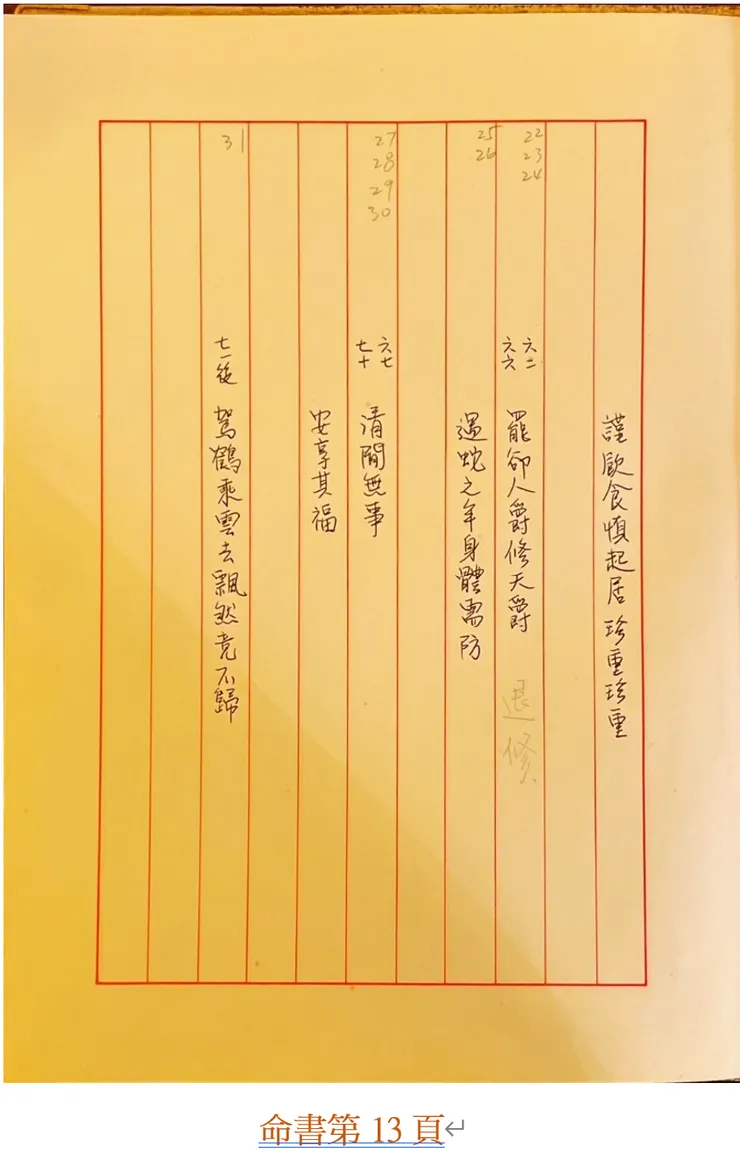 謹飲食慎起居 珍重珍重
22
23
24
六二
六六
罷卻人爵修天爵 退修
25
26
遇蛇之年身體需防
27
28
29
30
六七
七十
清閒無事
安享其福
31
七一後 駕鶴乘雲去飄然竟不歸
命書第 13 頁↵